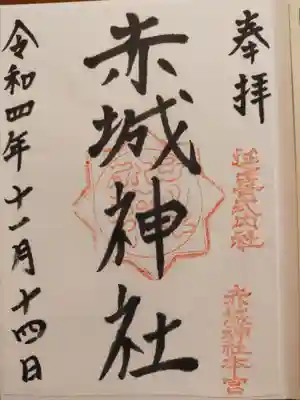 奉拝
延喜式内社
赤城神社本宮
赤城神社
令和四年十一月十四日